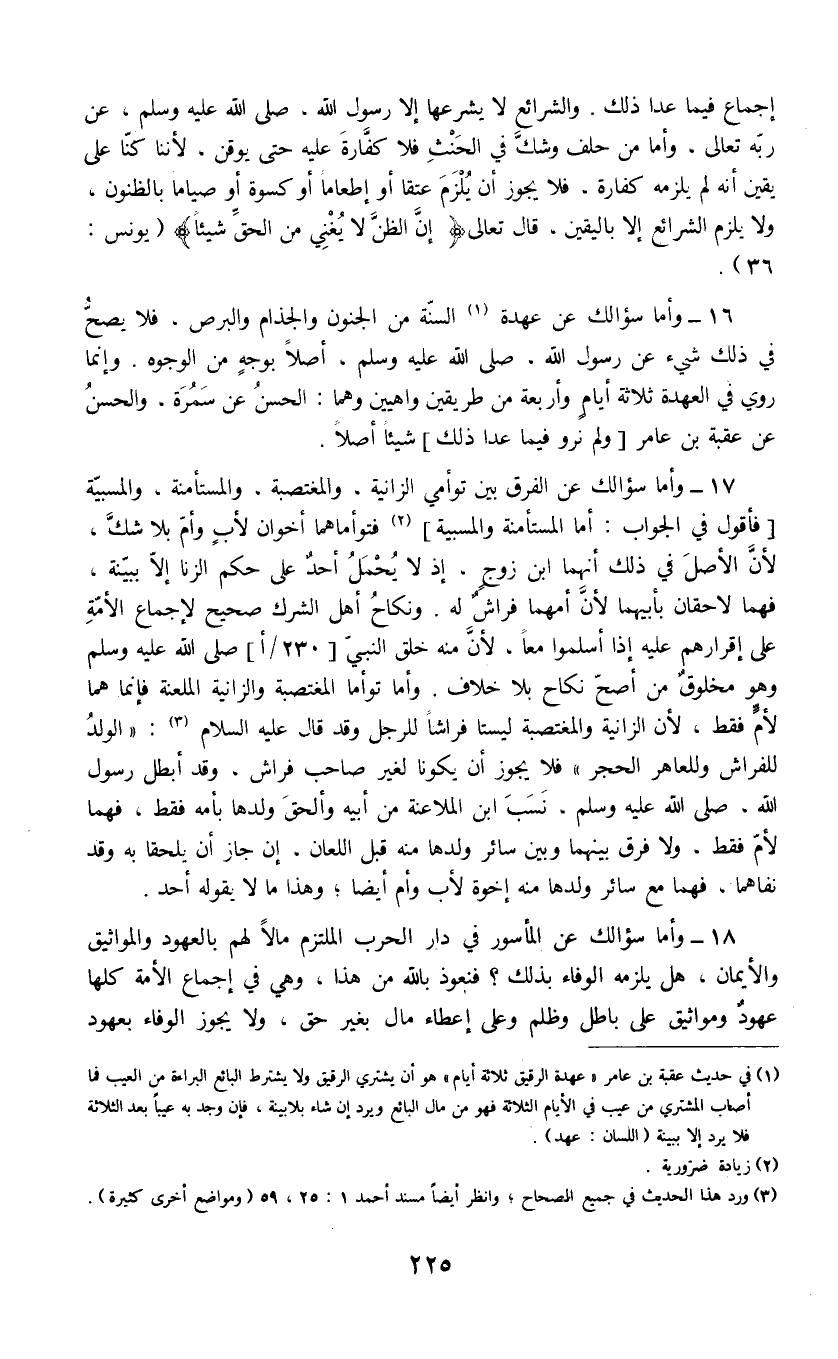 إجماع فيما عدا ذلك . والشرائع لا يشرعها إلا رسول الله ، صلى الله عليه وسلم ، عن
ربّه تعالى . وأما من حلف وشكَّ في الحَنْثِ فلا كفَّارةَ عليه حتى يوقن ، لأننا كنّا على
يقين أنه لم يلزمه كفارة . فلا يجوز أن يُلْزَمَ عتقا أو إطعاماً أو كسوة أو صياما بالظنون ،
ولا يلزم الشرائع إلا باليقين ، قال تعالى ﴿ إنَّ الظنَّ لا يُغْنِي من الحقِّ شيئاً ﴾ ( يونس :
٣٦ ) .
١٦ ــ وأما سؤالك عن عهدة (١) السنّة من الجنون والجذام والبرص ، فلا يصحُّ
في ذلك شيء عن رسول الله ، صلى الله عليه وسلم ، أصلاً بوجهٍ من الوجوه . وإنما
روي في العهدة ثلاثة أيامٍ وأربعة من طريقين واهيين وهما : الحسنُ عن سَمُرَة ، والحسنُ
عن عقبة بن عامر [ ولم نرو فيما عدا ذلك ] شيئاً أصلاً .
١٧ ــ وأما سؤالك عن الفرق بين توأمي الزانية ، والمغتصبة ، والمستأمنة ، والمسبيّة
[ فأقول في الجواب : أما المستأمنة والمسبية ] (٢) فتوأماهما أخوان لأبٍ وأمّ بلا شكَّ ،
لأنَّ الأصلَ في ذلك أنهما ابن زوجٍ ، إذ لا يُحْمَلُ أحدٌ على حكم الزنا إلاّ ببيّنة ،
فهما لاحقان بأبيهما لأنَّ أمهما فراشٌ له . ونكاحُ أهل الشرك صحيح لإجماع الأمّةِ
على إقرارهم عليه إذا أسلموا معاً ، لأنَّ منه خلق النبيّ [ ٢٣٠/أ ] صلى الله عليه وسلم
وهو مخلوقٌ من أصحّ نكاح بلا خلاف . وأما توأما المغتصبة والزانية الملعنة فإنما هما
لأمٍّ فقط ، لأن الزانية والمغتصبة ليستا فراشاً للرجل وقد قال عليه السلام (٣) : « الولدُ
للفراش وللعاهر الحجر » فلا يجوز أن يكونا لغير صاحب فراش . وقد أبطل رسول
الله ، صلى الله عليه وسلم ، نَسَبَ ابن الملاعنة من أبيه وألحقَ ولدها بأمه فقط ، فهما
لأمّ فقط . ولا فرق بينهما وبين سائر ولدها منه قبل اللعان . إن جاز أن يلحقا به وقد
نفاهما ، فهما مع سائر ولدها منه إخوة لأب وأم أيضا ؛ وهذا ما لا يقوله أحد .
١٨ ــ وأما سؤالك عن المأسور في دار الحرب الملتزم مالاً لهم بالعهود والمواثيق
والأيمان ، هل يلزمه الوفاء بذلك ؟ فنعوذ بالله من هذا ، وهي في إجماع الأمة كلها
عهودٌ ومواثيق على باطل وظلم وعلى إعطاء مال بغير حق ، ولا يجوز الوفاء بعهود
(١) في حديث عقبة بن عامر « عهدة الرقيق ثلاثة أيام » هو أن يشتري الرقيق ولا يشترط البائع البراءة من العيب فما
أصاب المشتري من عيب في الأيام الثلاثة فهو من مال البائع ويرد إن شاء بلابينة ، فإن وجد به عيباً بعد الثلاثة
فلا يرد إلا ببينة ( اللسان : عهد ) .
(٢) زيادة ضرورية .
(٣) ورد هذا الحديث في جميع الصحاح ؛ وانظر أيضاً مسند أحمد ١ : ٢٥ ، ٥٩ ( ومواضع أخرى كثيرة ) .
٢٢٥